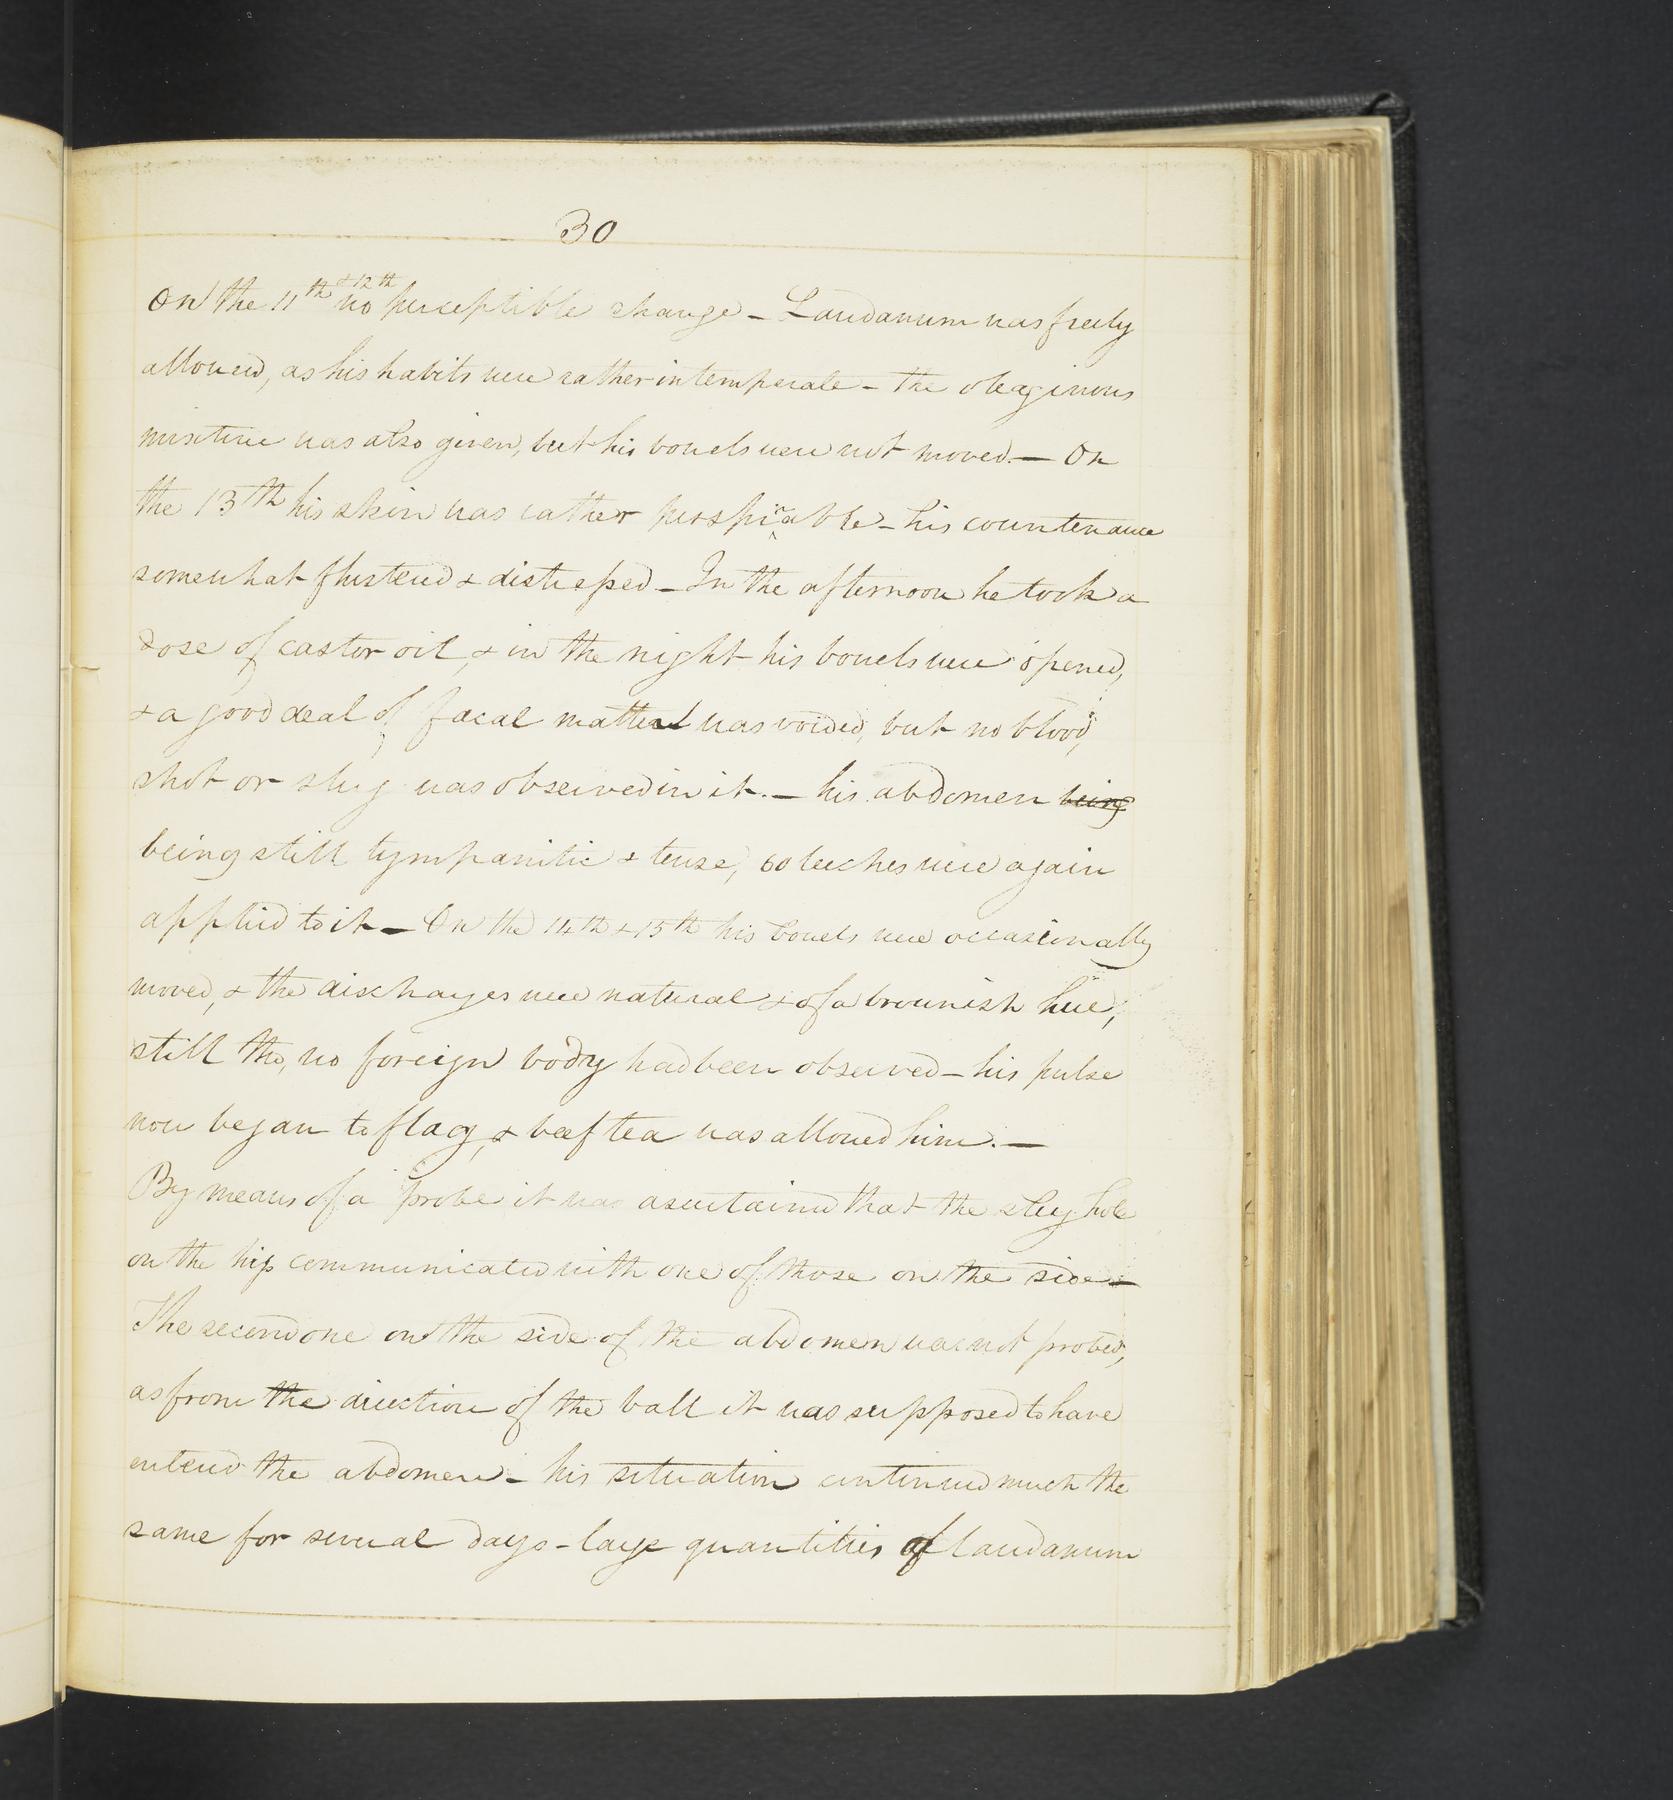 30
On the 11th & 12th no perceptible change – Laudanum was freely
allowed, as his habits were rather intemperate – the oleaginous
mixture was also given, but his bowels were not moved. – On
the 13th his skin was rather perspirable – his countenance
somewhat flustered & distressed – In the afternoon he took a
dose of castor oil, & in the night his bowels were opened,
& a good deal of facal matter was voided, but no blood,
shot or slug was observed in it. – his abdomen being
being still tympanitic & tense, 60 leeches were again
applied to it – On the 14th & 15th his bowels were occasionally
moved, & the discharges were natural & of a brownish hue,
still tho, no foreign body had been observed – his pulse
now began to flag, & beef tea was allowed him. –
By means of a probe it was ascertained that the slug hole
on the hip communicated with one of those on the side –
The second one on the side of the abdomen was not probed,
as from the direction of the ball it was supposed to have
entered the abdomen – his situation continued much the
same for several days – large quantities of laudanum